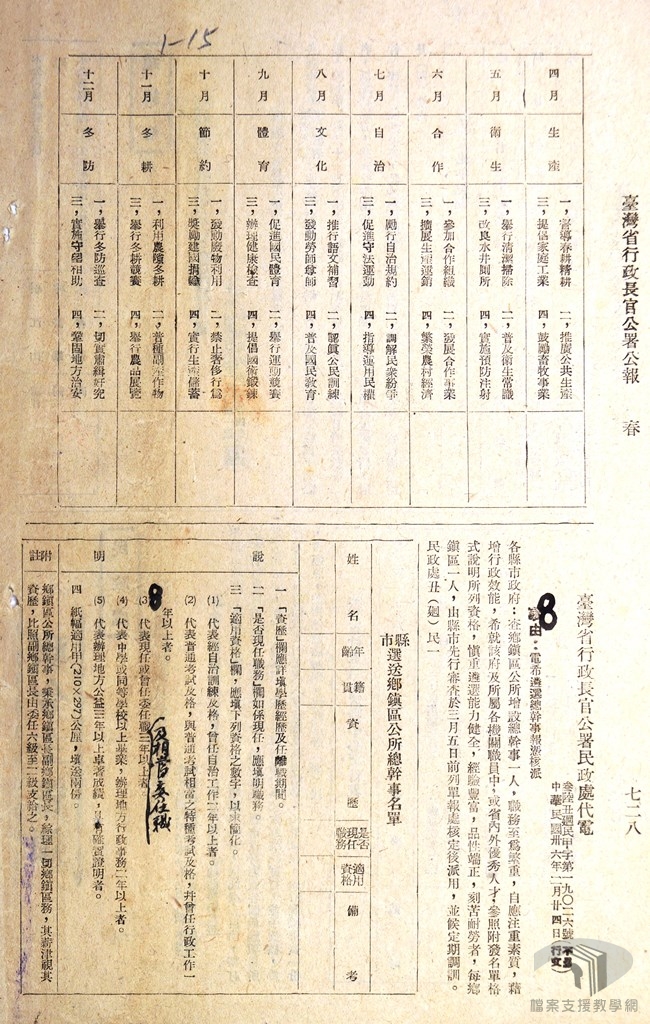 1-15
臺灣省行政長官公署公報　春　七二八
四月　生產　一，督導春耕精耕　二，推廣公共生產
三，提倡家庭工業　四，鼓勵畜牧事業
五月　衛生　一，舉行清潔掃除　二，普及衛生常識
三，改良水井厠所　四，實施預防注射
六月　合作　一，參加合作組織　二，發展合作事業
三，擴展生產運銷　四，繁榮農村經濟
七月　自治　一，勵行自治規約　二，調解民衆紛爭
三，促進守法運動　四，指導運用民權
八月　文化　一，推行語文補習　二，認眞公民訓練
三，發動勞師尊師　四，普及國民敎育
九月　體育　一，促進國民體育　二，舉行運動競賽
三，辦理健康檢查　四，提倡國術鍛鍊
十月　節約　一，發動廢物利用　二，禁止奢侈行爲
三，獎勵建國捐輸　四，實行生產儲蓄
十一月　冬耕　一，利用農隙冬耕　二，普種副產作物
三，舉行冬耕競賽　四，舉行農品展覽
十二月　冬防　一，舉行冬防巡查　二，切實肅緝奸宄
三，實施守望相助　四，鞏固地方治安
臺灣省行政長官公署民政處代電
叁陸丑迴民甲字第一九〇二六號
中華民國卅六年二月廿四日
不另行文
8
事由：電希遴選總幹事報派核派
各縣市政府：查鄉鎭區公所增設總幹事一人，職務至爲繁重，自應注重素質，藉
增行政效能，希就該府及所屬各機關職員中，或省內外優秀人才，參照附發名單格
式說明所列資格，愼重遴選能力健全，經驗豐富，品性端正，刻苦耐勞者，每鄉
鎭區一人，由縣市先行審查於三月五日前列單報處核定後派用，並候定期調訓。
民政處丑（迴）民一
縣市選送鄉鎭區公所總幹事名單
姓名　年齡　籍貫　資歷　是否現任職務　適用資格　備考
說明
一　「資歷」欄應詳填學歷經歷及任離職期間。
二　「是否現任職務」欄如係現任，應填明職務。
三　「適用資格」欄，應填下列資格之數字，以求簡化。
(1)　代表經自治訓練及格，曾任自治工作一年以上者。
(2)　代表普通考試及格，與普通考試相當之特種考試及格，幷曾任行政工作一
年以上者。
8
(3)　代表現任或曾任委任職三年以上者
(4)　代表中學或同等學校以上畢業，辦理地方行政事務二年以上者。
(5)　代表辦理地方公益三年以上卓著成績，具有確實證明者。
四　紙幅適用甲(210×297)公厘，填送兩份。
附註
鄉鎭區公所總幹事，秉承鄉鎭區長副鄉鎭區長，綜理一切鄉鎭區務，其薪津視其
資歷，比照副鄉鎭區長由委任六級至二級支給之。
檔案支援教學網